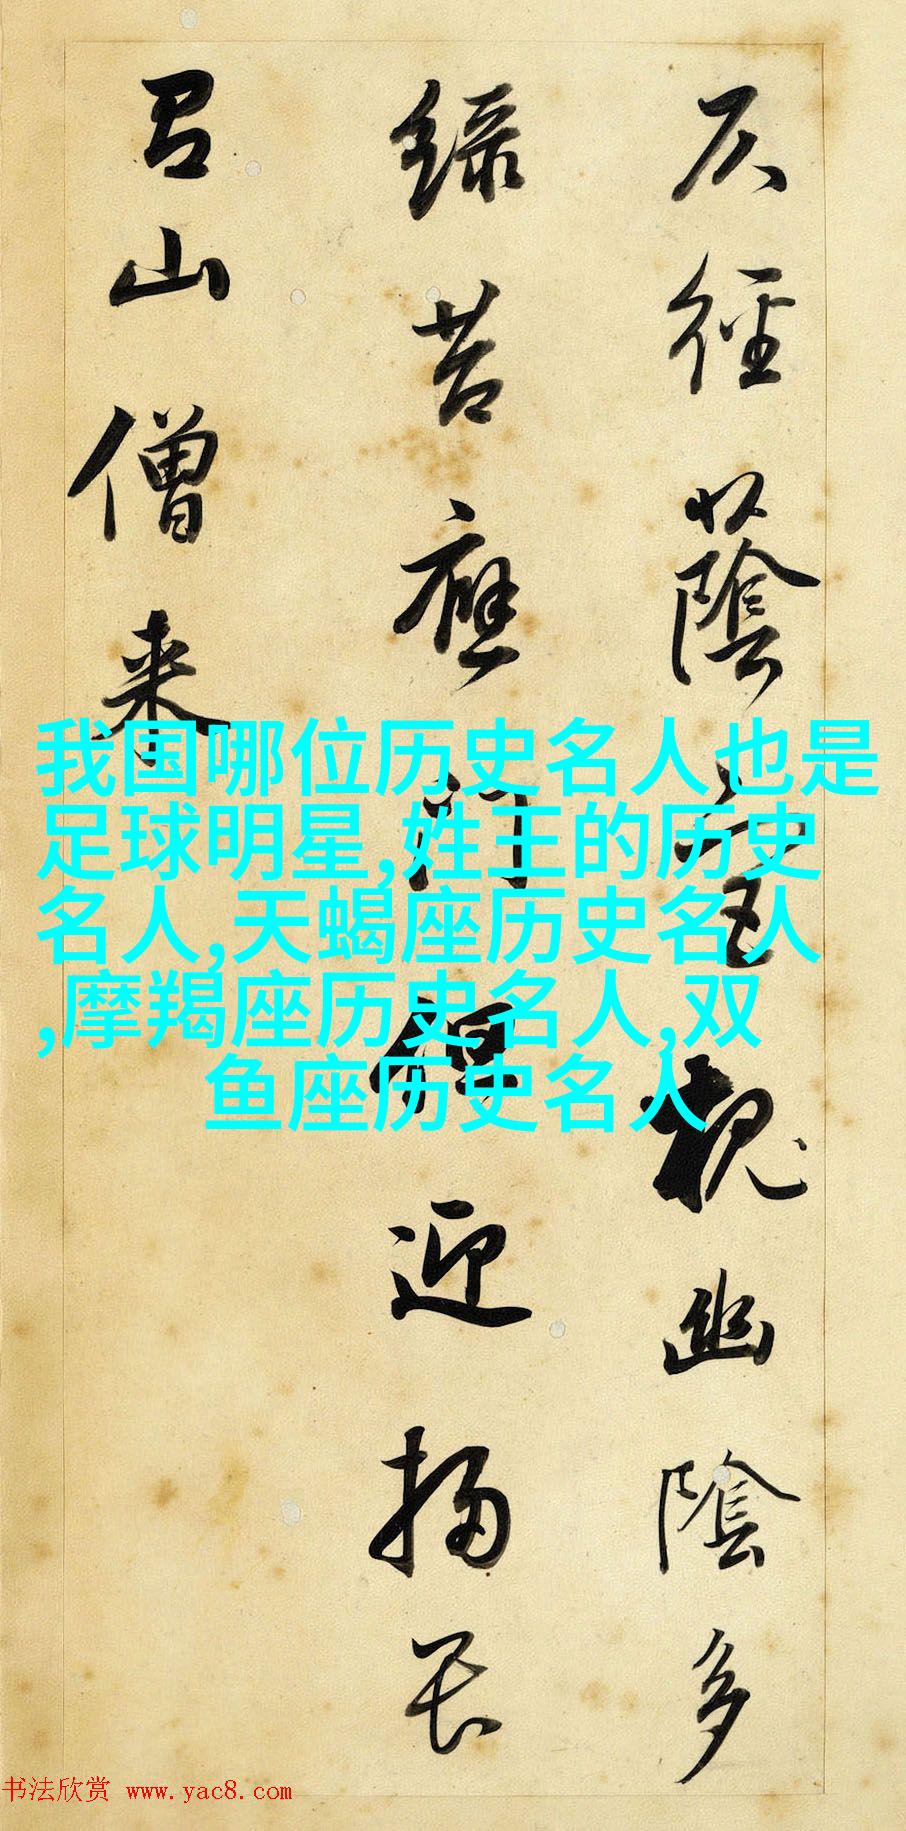 仄徑蔭宮槐幽陰多
綠苔應門但迎掃畏
有山僧来
我国哪位历史名人也是
足球明星,姓王的历史
名人,天蝎座历史名人
,摩羯座历史名人,双
鱼座历史名人
书法欣赏 www.yac8.com